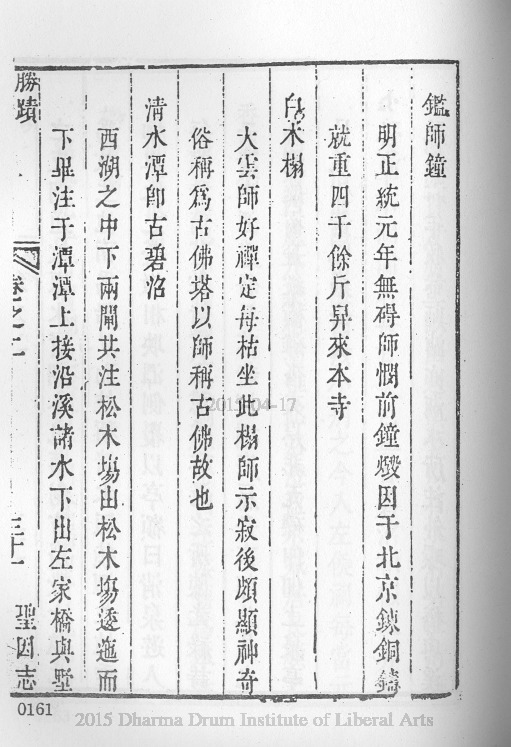 鑑師鐘
明正統元年無碍師憫前鐘燬因于北京鍊銅鑄
就重四千餘斤舁來本寺
白木榻
大雲師好禪定每枯坐此榻師示寂後頗顯神奇
俗稱爲古佛塔以師稱古佛故也
清水潭卽古碧沼
西湖之中下兩閘共注松木塲由松木塲逶迤而
下畢注于潭潭上接沿溪諸水下出左家橋與墅
勝蹟
卷之二
三十一
聖因志
2015-04-17
0161
2015 Dharma Drum Institute of Liberal Arts